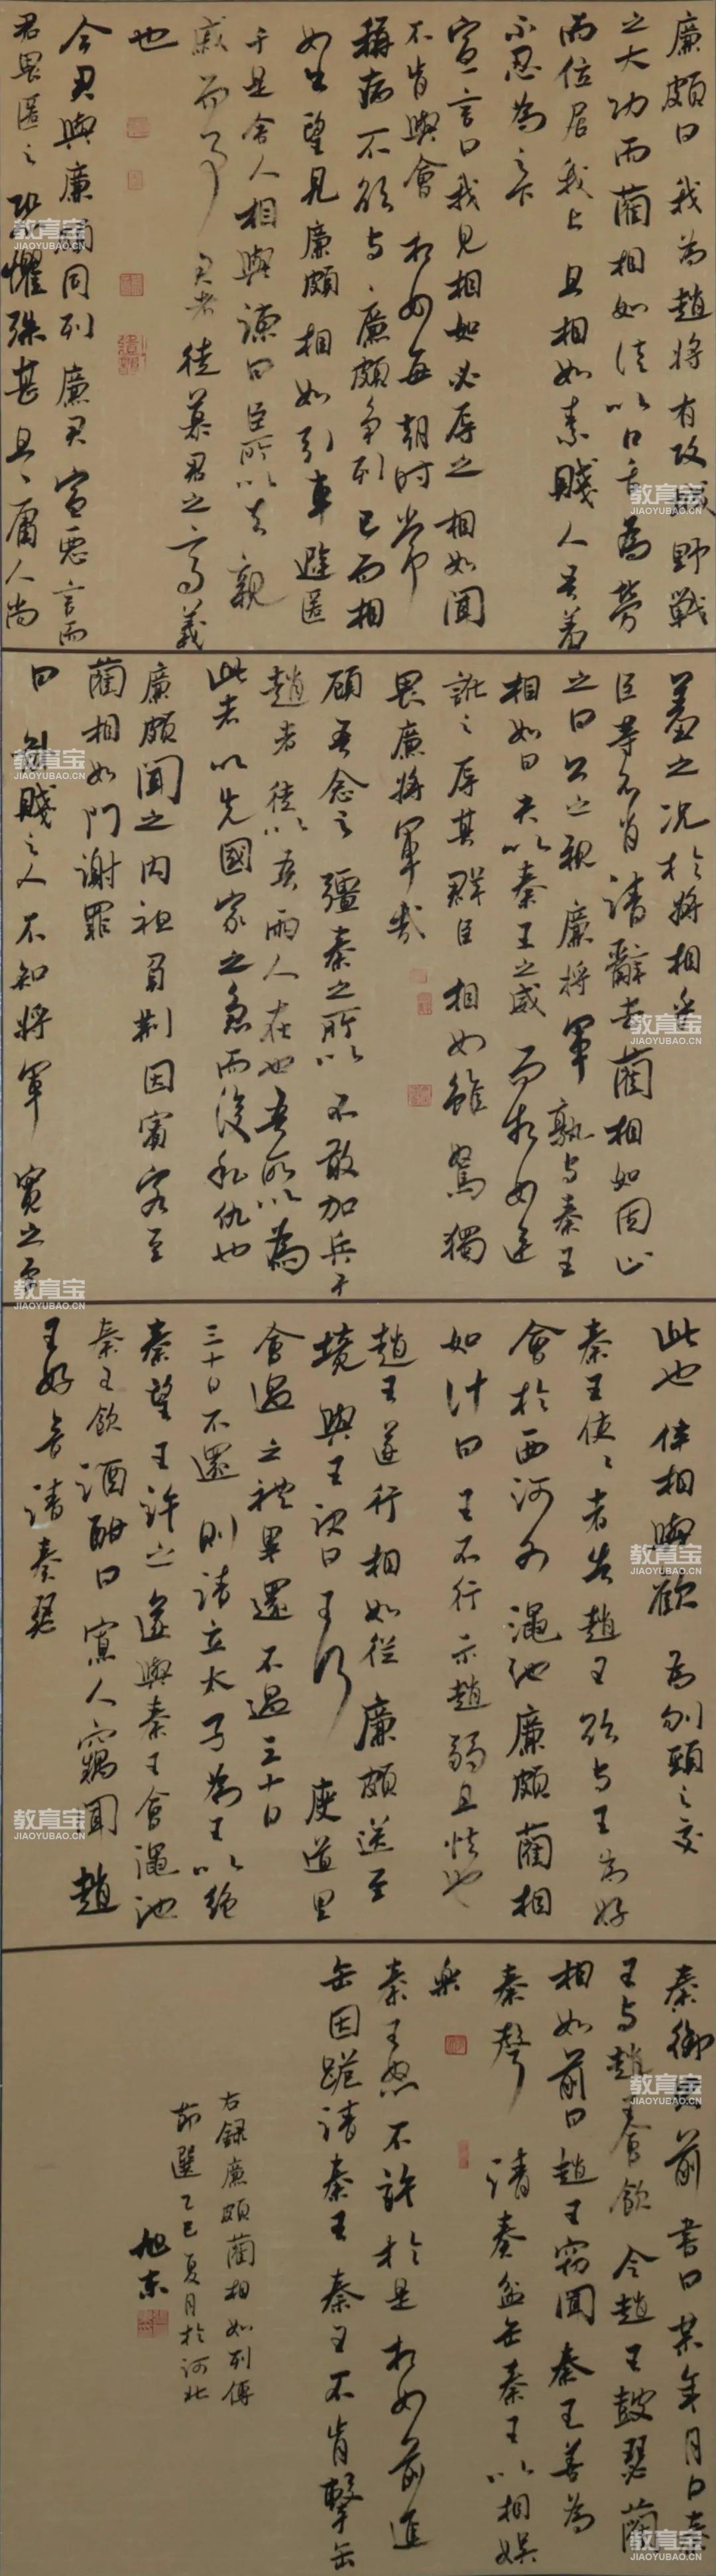 廉頗曰我為趙將有攻城野戰
之大功而藺相如徒以口舌為勞
而位居我上且相如素賤人吾羞
不忍為之下
宣言曰我見相如必辱之相如聞
不肯與會相如每朝時常
稱病不欲與廉頗爭列已而相
如出望見廉頗相如引車避匿
于是舍人相與諫曰臣所以去親
戚而事君者徒慕君之高義
也
今君與廉頗同列廉君宣惡言而
君畏匿之恐懼殊甚且庸人尚
羞之況於將相乎
臣等不肖請辭去藺相如固止
之曰公之視廉將軍孰与秦王
相如曰夫以秦王之威而相如廷
叱之辱其群臣相如雖駑獨
畏廉將軍哉
顧吾念之彊秦之所以不敢加兵于
趙者徒以吾兩人在也吾所以為
此者以先國家之急而後私仇也
廉頗聞之肉袒負荊因賓客至
藺相如門謝罪
曰鄙賤之人不知將軍寬之至
此也伴相與歡為刎頸之交
秦王使使者告趙王欲与王為好
會於西河外澠池廉頗藺相
如計曰王不行示趙弱且怯也
趙王遂行相如從廉頗送至
境與王訣曰王行度道里
會遇之禮畢還不過三十日
三十日不還則請立太子為王以絕
秦望王許之遂與秦王會澠池
秦王飲酒酣曰寡人竊聞趙
王好音請奏瑟
秦御史前書曰某年月日秦
王与趙王會飲令趙王鼓瑟藺
相如前曰趙王窃聞秦王善為
秦聲請奏盆缶秦王以相娛
樂
秦王怒不許於是相如前進
缶因跪請秦王秦王不肯擊缶
右録廉頗藺相如列傳
節選乙巳夏月於河北
旭東
教育宝
JIAOYUBAO.CN
教育宝
JIAOYUBAO.CN
教育宝
JIAOYUBAO.CN
教育宝
JIAOYUBAO.CN
教育宝
JIAOYUBAO.CN
教育宝
JIAOYUBAO.CN
教育宝
JIAOYUBAO.CN
教育宝
JIAOYUBAO.CN
教育宝
JIAOYUBAO.CN
教育宝
JIAOYUBAO.CN